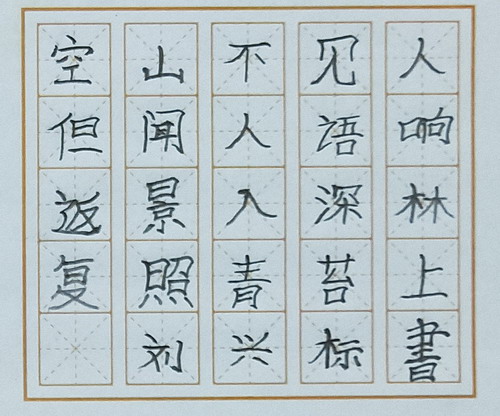 空山不见人
但闻人语响
返景入深林
复照青苔上
刘兴标書